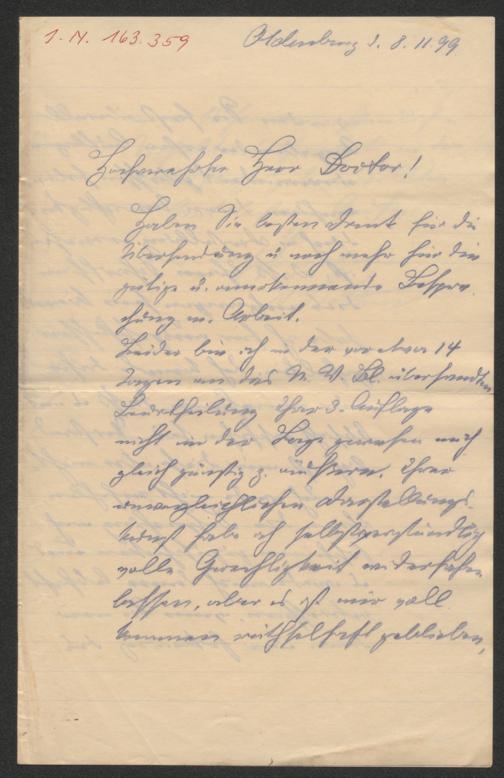 I. N. 163.359
Oldenburg d. 8. 11 99
Hochverehrter Herr Doctor!
Haben Sie besten Dank für die
Übersendung u noch mehr für die
gütige u. anerkennende Bespre
chung m. Arbeit.
Leider bin ich in der vor etwa 14
Tagen an das Bl. übersandten
Beurtheilung Ihrer 3. Auflage
nicht in der Lage gewesen mich
gleich günstig z. äußern. Ihrer
unvergleichlichen Darstellungs
kunst habe ich selbstverständlich
volle Gerechtigkeit widerfahren
lassen, aber es ist mir voll
kommen räthselhaft geblieben,